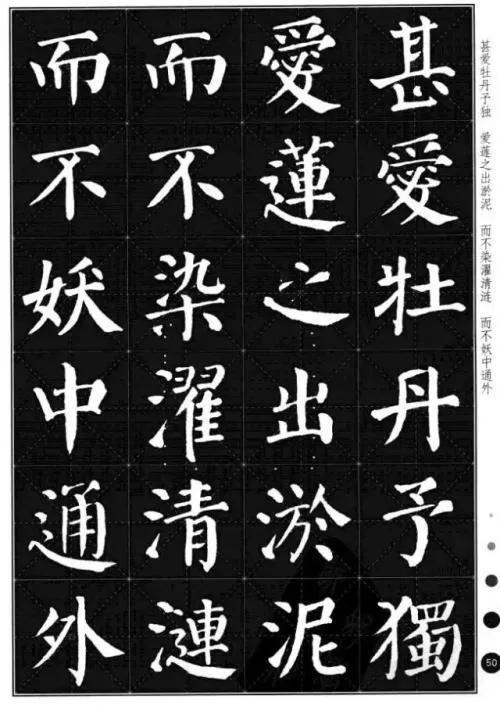 甚愛牡丹予獨
愛蓮之出淤泥
而不染濯清漣
而不妖中通外
甚爱牡丹予独 爱莲之出淤泥 而不染濯清涟 而不妖中通外
50